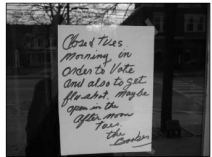 Closed Tues
morning in
order to Vote
and also to get
flu shot, maybe
open in the
after moon
Tues.
the
Bookies